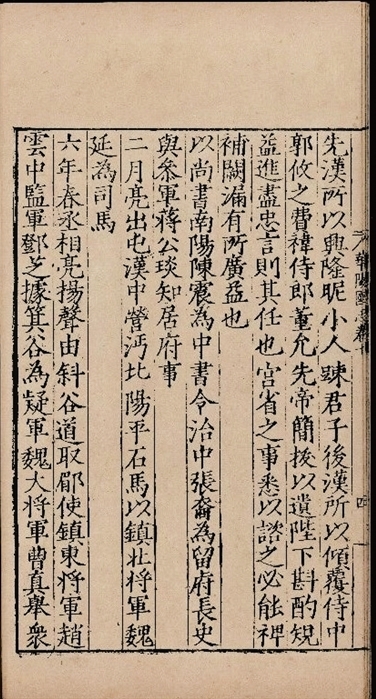 先漢所以興隆昵小人踈君子後漢所以傾覆侍中
郭攸之費禕侍郎董允先帝簡拔以遺陛下斟酌規
益進盡忠言則其任也宮省之事悉以諮之必能裨
補闕漏有所廣益也
以尚書南陽陳震為中書令治中張裔為留府長史
與參軍蔣公琰知居府事
二月亮出屯漢中營沔北陽平石馬以鎮北將軍魏
延為司馬
六年春丞相亮揚聲由斜谷道取郿使鎮東將軍趙
雲中監軍鄧芝據箕谷為疑軍魏大將軍曹真舉衆